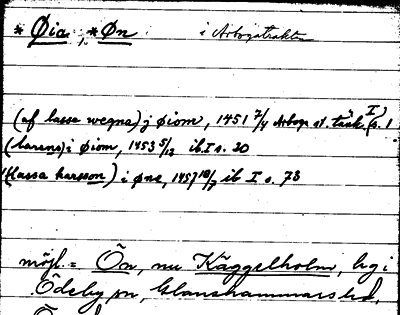 * Øia, * Øn i Arbogatrakten
(af lassa wegna) j øiom, 1451 7/4 Arbog. st. tänk. I s. 1
(larens) i øiom, 1453 5/12 ib. I s. 20
(lassa larsson) i øne, 1457 18/7 ib I s. 73
möjl. = Õn, nu Käggelholm, beg i
Ödeby sn, Glanshammars hd,